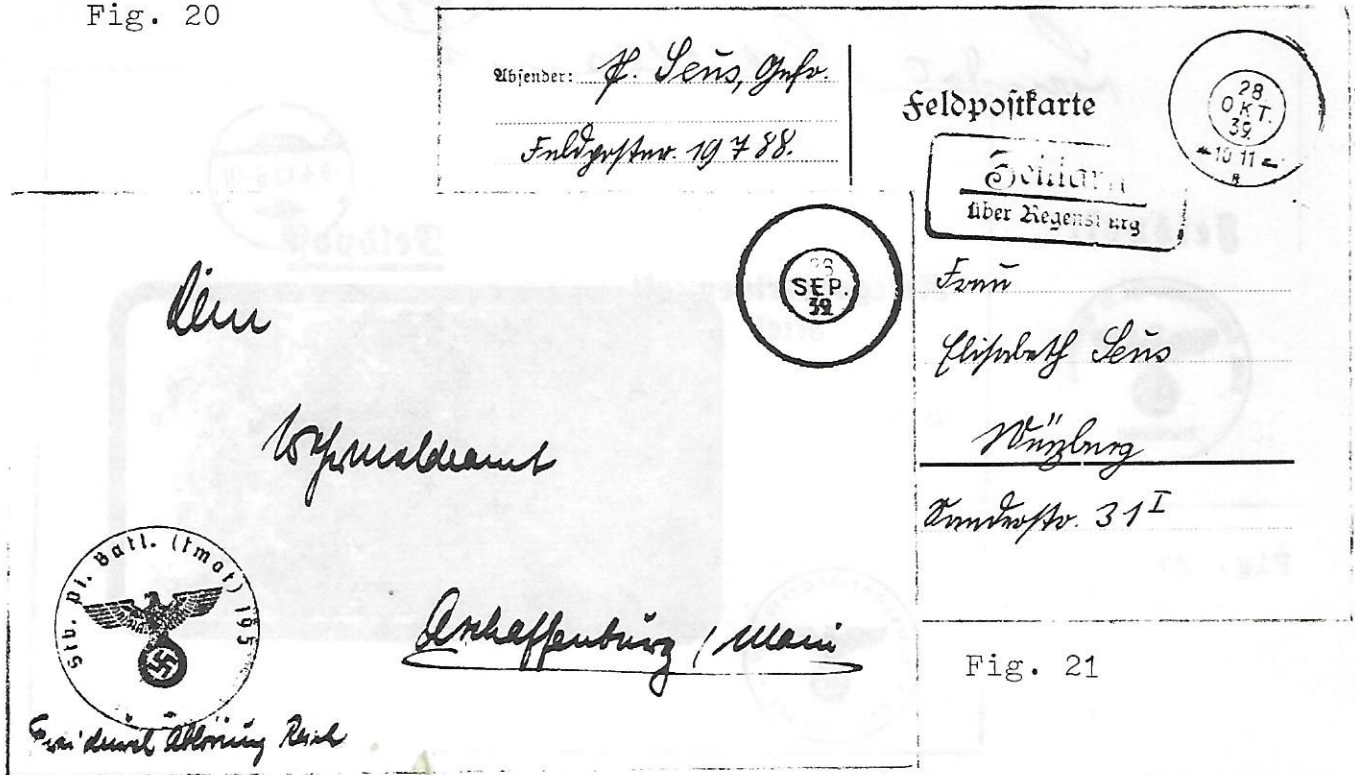 Fig. 20
Absender: P. Seus, Gefr.
Feldpostnr. 19788.
Feldpostkarte
28
OKT.
39
10 11
Zeitlarn
über Regensburg
Frau
Elisabeth Seus
Würzburg
Sanderstr. 31 I
Fig. 21
SEP.
39
Wehrmeldeamt
Aschaffenburg / Main
Stb. Pi. Batl. (tmot) 195
Frei durch Ablösung Reich